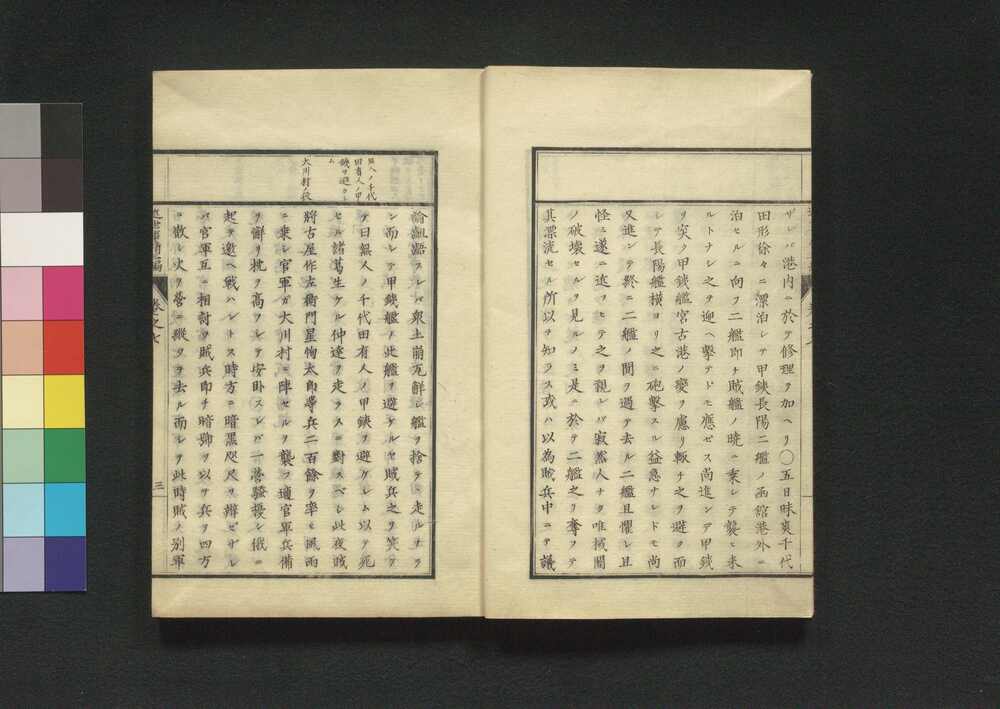 サレバ港内ニ於テ修理ヲ加ヘリ〇五日昧爽千代
田形徐々ニ漂泊シテ甲鉄長陽二艦ノ函館港外ニ
泊セルニ向フ二艦即チ賊艦ノ暁ニ乗シテ襲ヒ来
ルトナシ之ヲ迎ヘ撃テドモ應ゼス尚進ンデ甲鉄
ヲ突ク甲鉄艦宮古港ノ變ヲ慮リ輙チ之ヲ避ク而
シテ長陽艦横ヨリ之ニ砲撃スル益急ナレドモ尚
又進ンデ終ニ二艦ノ間ヲ過テ去ル二艦且懼レ且
怪ミ遂ニ進ンテ之ヲ親レバ寂然人ナク唯機関
ノ破壊セルヲ見ルノミ是ニ於テ二艦之ヲ奪フテ
其漂流セル所以ヲ知ラス或ハ以為賊兵中ニテ議
無人ノ千代
田有人ノ甲
鉄ヲ避ケシ
ム
大川村ノ役
論齟齬スレバ衆土崩瓦解シ艦ヲ捨テヽ走ルナラ
ン而シテ甲鉄艦ノ此艦ヲ避ケルヤ賊兵之ヲ笑ヲ
テ曰無人ノ千代田有人ノ甲鉄ヲ避ケシム以テ死
セル諸葛生ケル仲達ヲ走ラスニ對スベシ此夜賊
將古屋作左衛門星恂太郎等兵二百餘ヲ率ヒ風雨
ニ乗シ官軍ガ大川村ニ陣セルヲ襲フ適官軍兵備
ヲ解リ枕ヲ高フシテ安卧スレバ一營騒擾シ俄ニ
起テ邀ヘ戦ハントス時方ニ暗黒咫尺ヲ辨ゼザレ
バ官軍互ニ相討ツ賊兵即チ暗號ヲ以テ兵ヲ四方
ニ散シ火ヲ營ニ縦ツテ去ル而シテ此時賊ノ别軍
巻之七
三